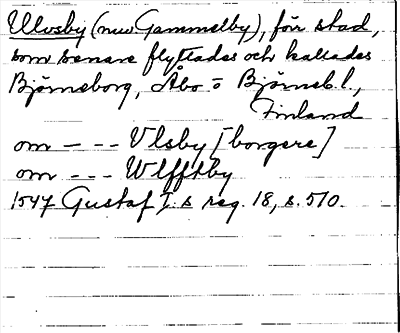 Ulvsby (nuv Gammelby), förr stad,
som senare flyttades och kallades
Björneborg, Åbo o Björneb. l.,
Finland
om - - - Vlsby [borgere]
om - - - Wlfftby
1547 Gustaf I:s reg. 18, s. 510.